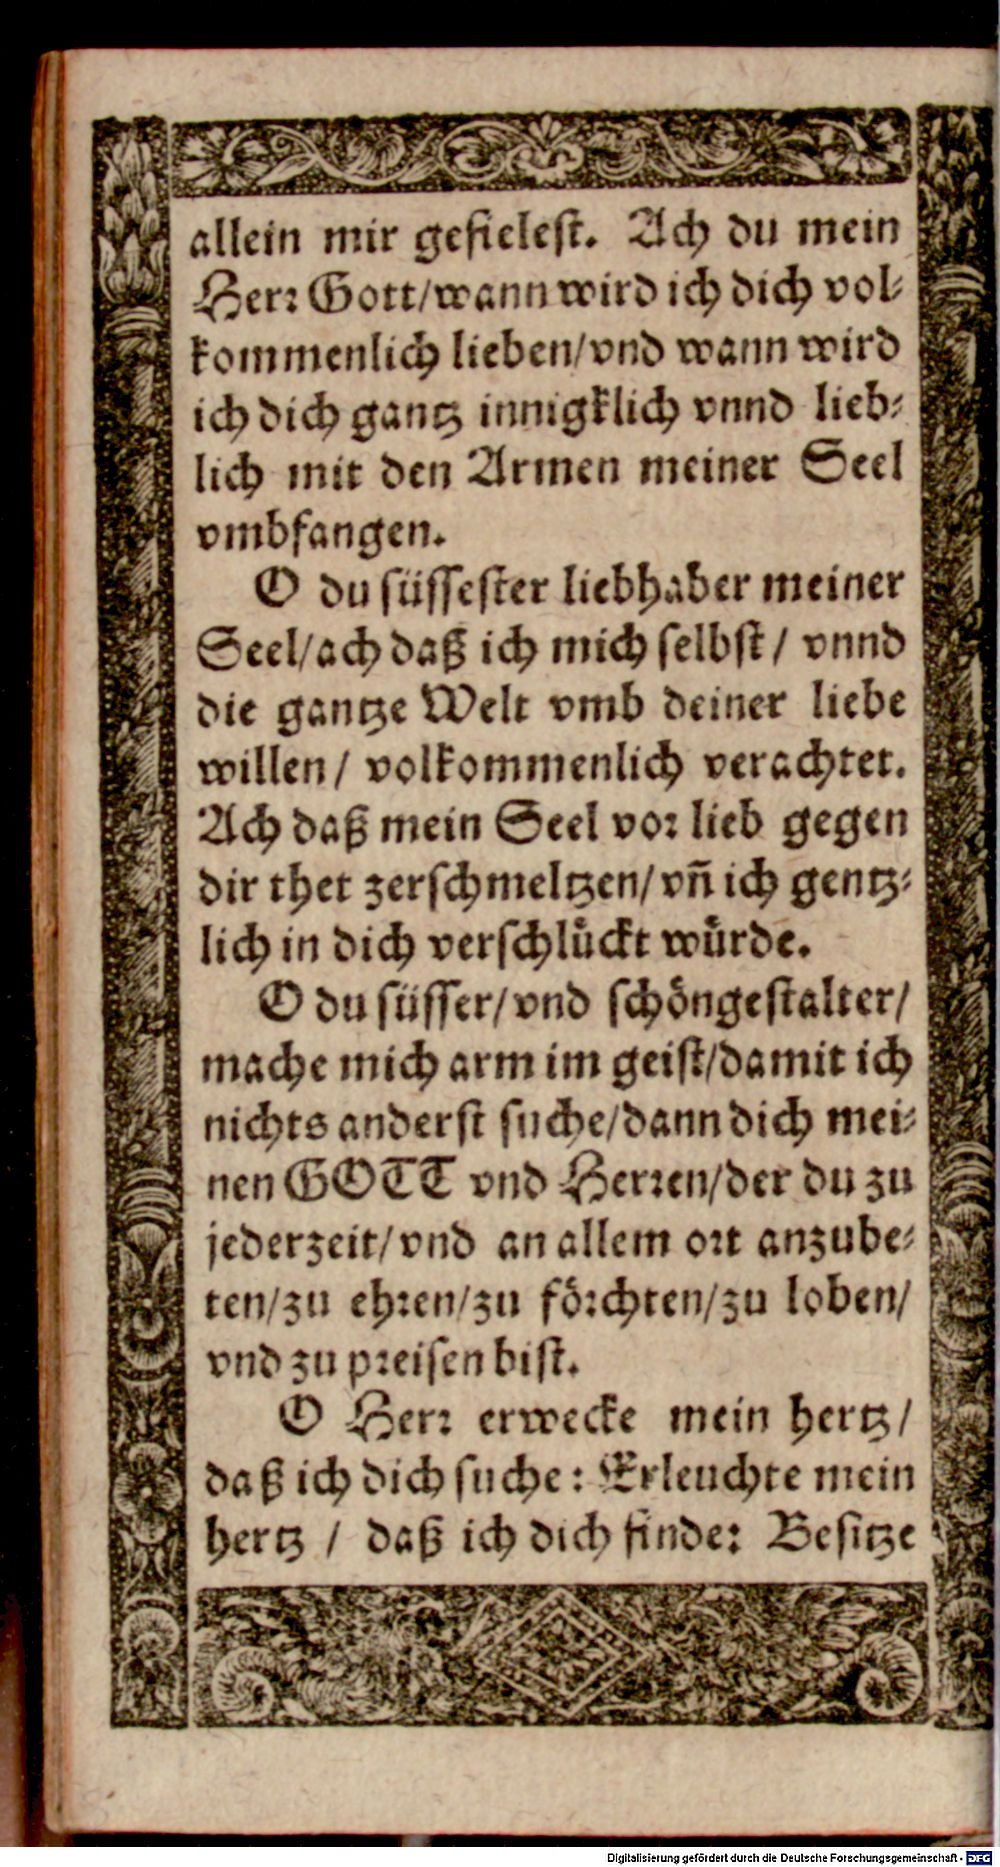 allein mir gefielest. Ach du mein
Herr Gott/wann wird ich dich vol-
kommenlich lieben/vnd wann wird
ich dich gantz innigklich vnnd lieb-
lich mit den Armen meiner Seel
vmbfangen.
O du süssester liebhaber meiner
Seel/ach daß ich mich selbst/ vnnd
die gantze Welt vmb deiner liebe
willen/ volkommenlich verachtet.
Ach daß mein Seel vor lieb gegen
dir thet zerschmeltzen/vñ ich gentz-
lich in dich verschluͤckt wuͤrde.
O du süsser/vnd schöngestalter/
mache mich arm im geist/damit ich
nichts anderst suche/dann dich mei-
nen GOTT vnd Herren/der du zu
jederzeit/vnd an allem ort anzube-
ten/zu ehren/zu förchten/zu loben/
vnd zu preisen bist.
O Herr erwecke mein hertz/
daß ich dich suche: Erleuchte mein
hertz / daß ich dich finde: Besitze
Digitalisierung gefördert durch die Deutsche Forschungsgemeinschaft - DFG